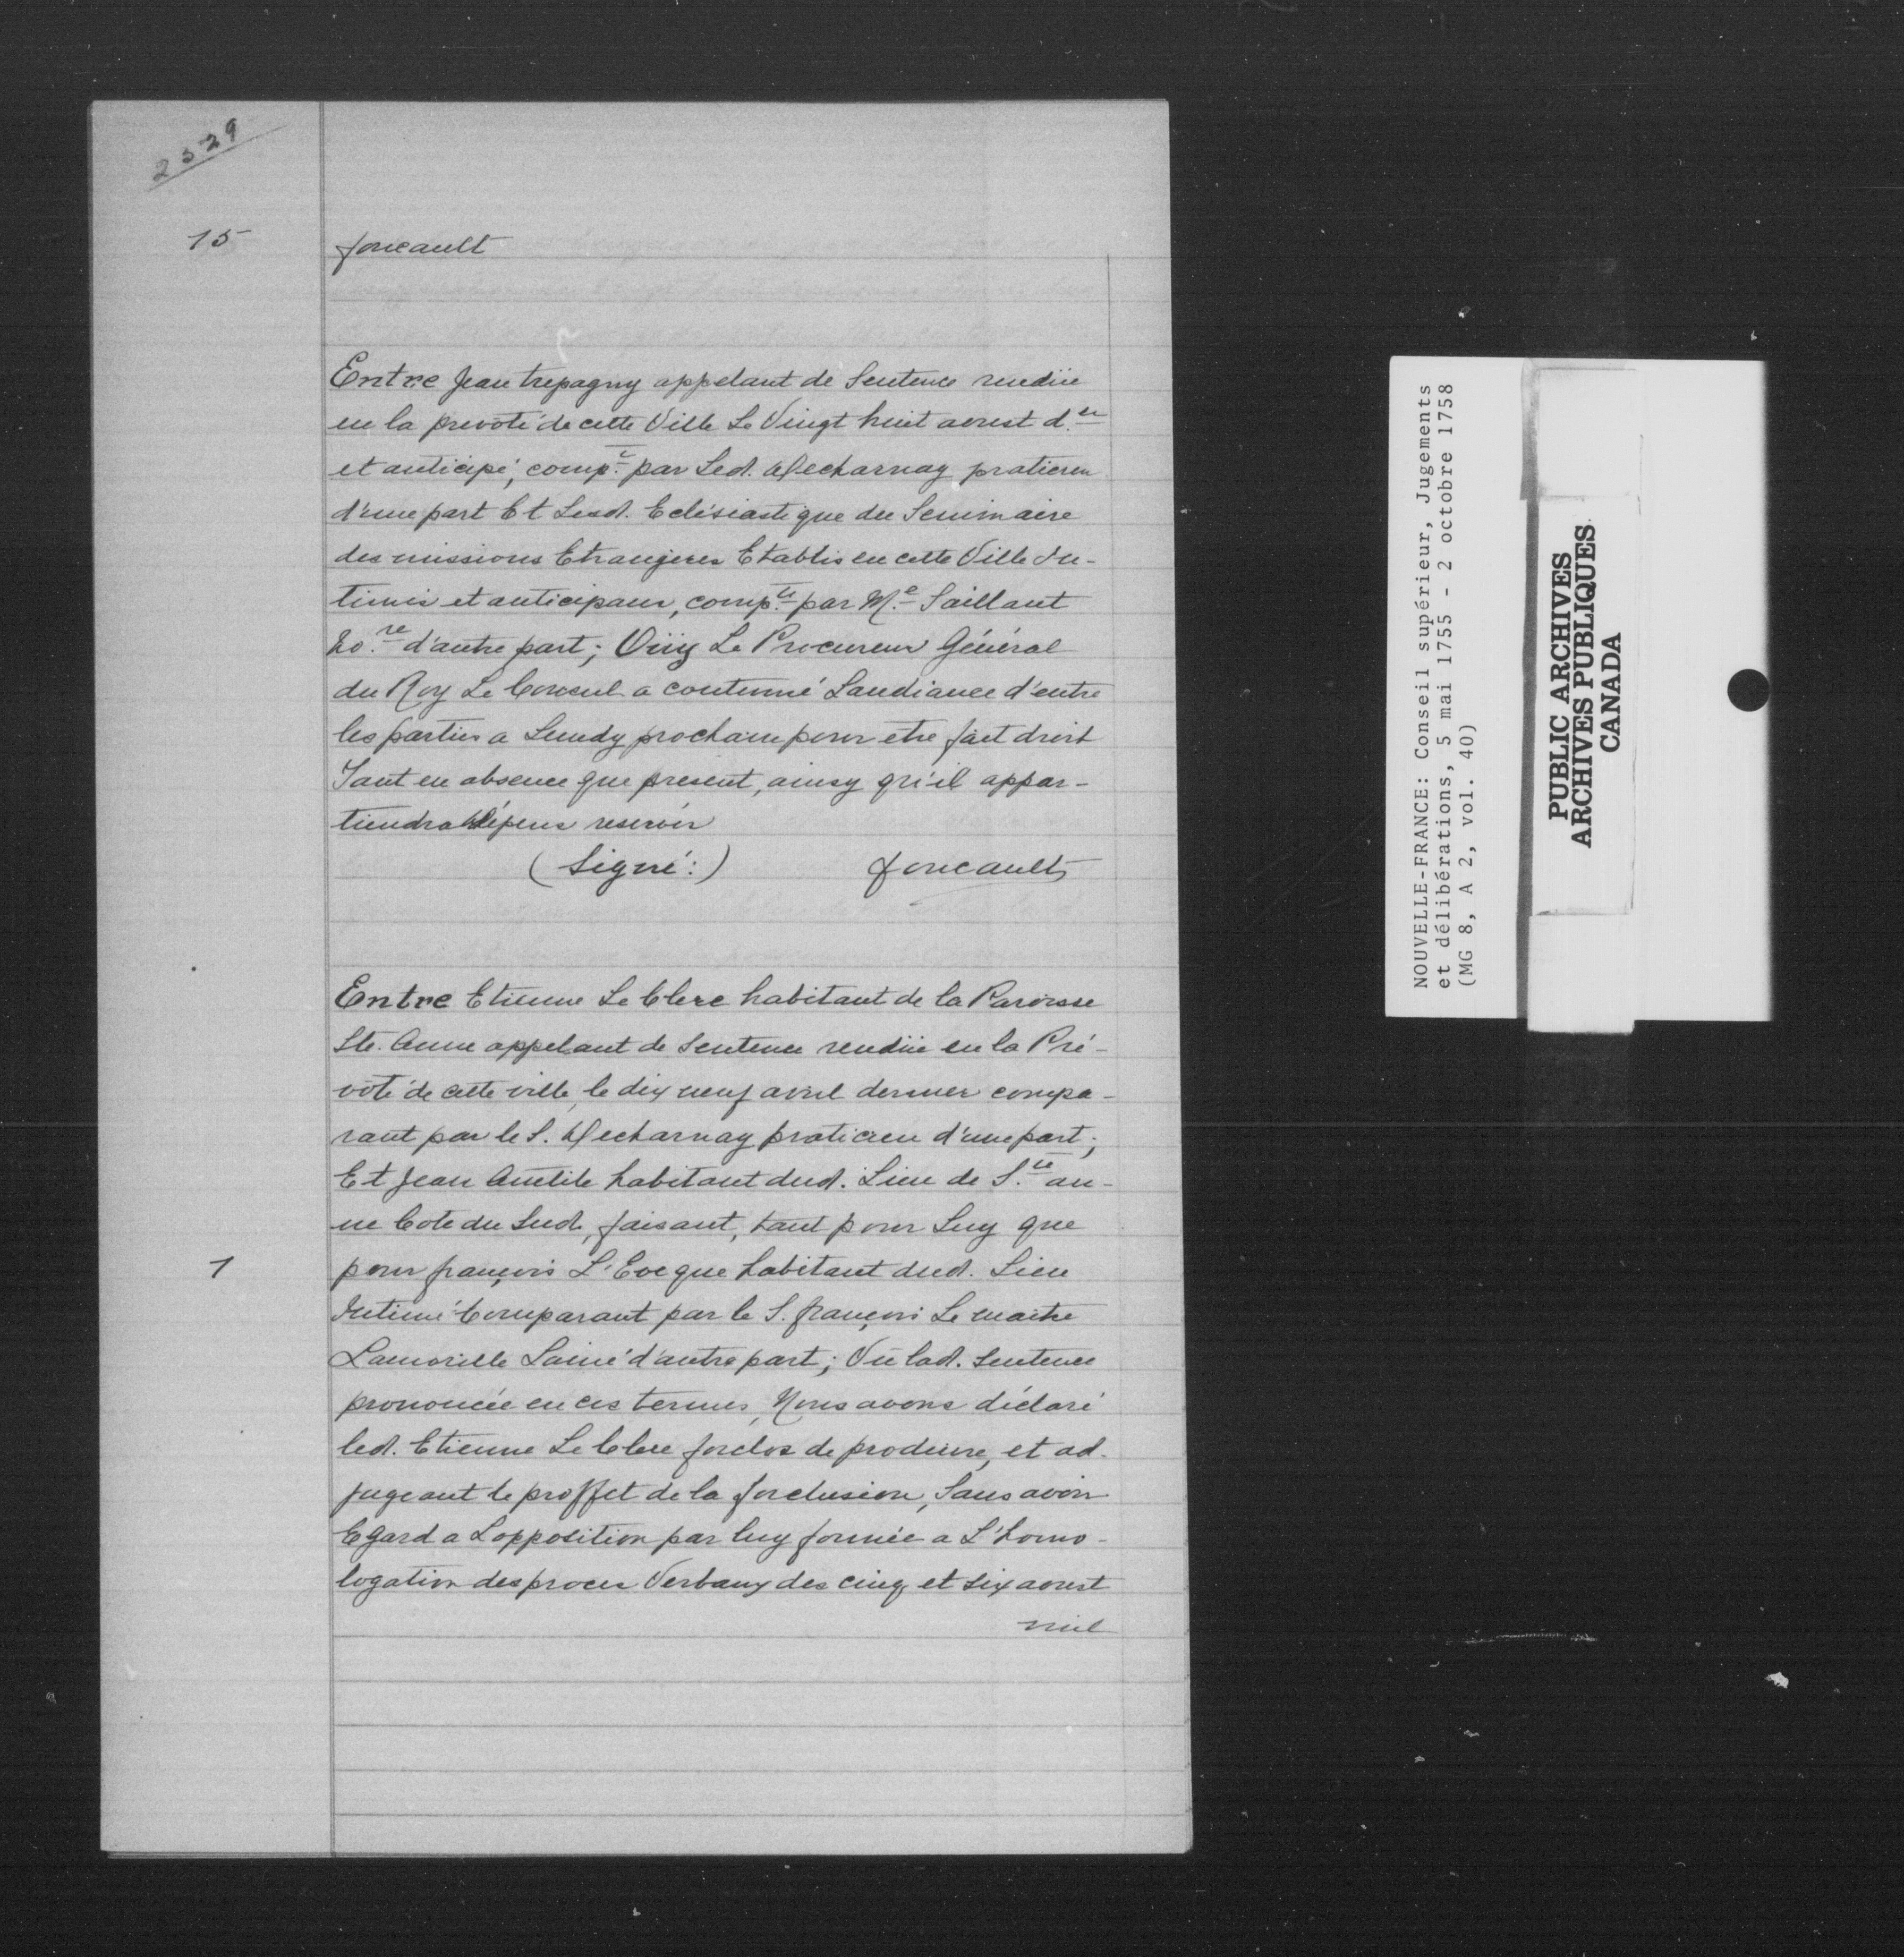 2329
15
foucault
Entre Jean trepagny appelant de Sentence rendüe
en la prevoté de cette Ville Le Vingt huit aoust d.er
et anticipé, comp.t par Led. Decharnay praticien
d'une part Et Lesd. Eclésiastique du Seminaire
des missions Etrangeres Etablis en cette Ville In-
timés et anticipans, comp.ts par M.e Saillant
no.re d'autre part; Oüy Le Procureur Général
du Roy Le Conseil a continué Laudiance d'entre
les parties a Lundy prochain pour etre fait droit
Tant en absence que present, ainsy qu'il appar-
tiendra Dépens reservés
(Signé:) foucault
Entre Etienne Le Clerc habitant de la Paroisse
Ste. Anne appelant de Sentence rendüe en la Pré-
vôté de cette ville, le dix neuf avril dernier compa-
rant par le S. Decharnay praticien d'une part;
Et Jean habitant dud. Lieu de S.te an-
ne Cote du Sud, faisant, tant pour Luy que
1
pour françois L'Evèque habitant dud. Lieu
Intimé Comparant par le S. françois Le maitre
Lamorille Lainé d'autre part; Vu lad. Sentence
prononcée en ces termes, Nous avons déclaré
led. Etienne Le Clerc forclos de produire, et ad-
jugeant le proffit de la forclusion, Sans avoir
Egard a Lopposition par luy formée a L'homo-
logation des procès Verbaux des cinq et six aoust
mil
NOUVELLE-FRANCE: Conseil supérieur, Jugements
et délibérations, 5 mai 1755 - 2 octobre 1758
(MG 8, A 2, vol. 40)
PUBLIC ARCHIVES
ARCHIVES PUBLIQUES
CANADA